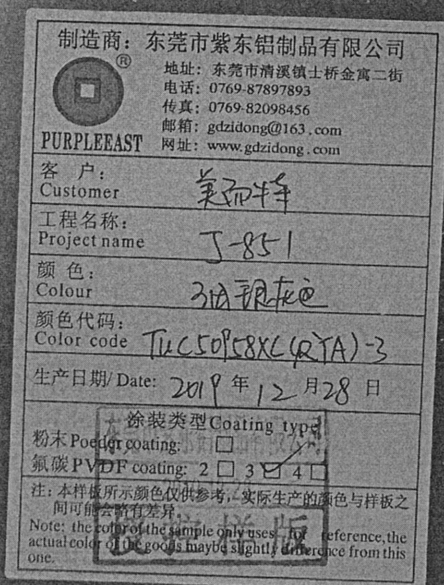 制造商：东莞市紫东铝制品有限公司
®
地址：东莞市清溪镇土桥金寓二街
电话：0769-87897893
传真：0769-82098456
邮箱：gdzidong@163.com
网址：www.gdzidong.com
PURPLEEAST
客 户：
Customer 美而特
工程名称：
Project name J-851
颜 色：
Colour 银灰色
颜色代码：
Color code TUC50958XC(2YA)-3
生产日期/Date: 2019 年 12 月 28 日
涂装类型Coating type
粉末Poeder coating: □
氟碳PVDF coating: 2 □ 3 ☑ 4 □
注：本样板所示颜色仅供参考，实际生产的颜色与样板之
间可能会略有差异.
Note: the color of the sample only uses for reference,the
actual color of the goods maybe slightly difference from this
one.
样版